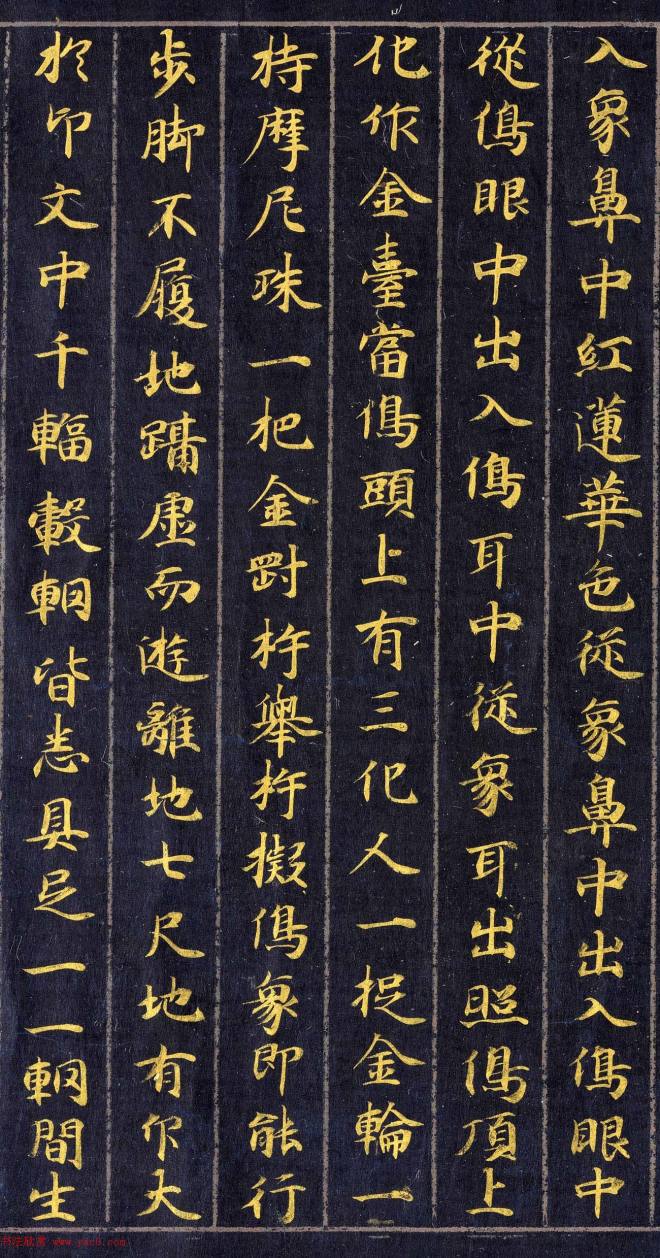 入象鼻中紅蓮華色從象鼻中出入像眼中
從像眼中出入像耳中從象耳出照像頂上
化作金臺當像頭上有三化人一捉金輪一
持摩尼珠一把金剛杵舉杵擬像象即能行
步脚不履地躡虛而遊離地七尺地有印文
於印文中千輻轂輞皆悉具足一一輞間生
书法欣赏 www.yac8.com